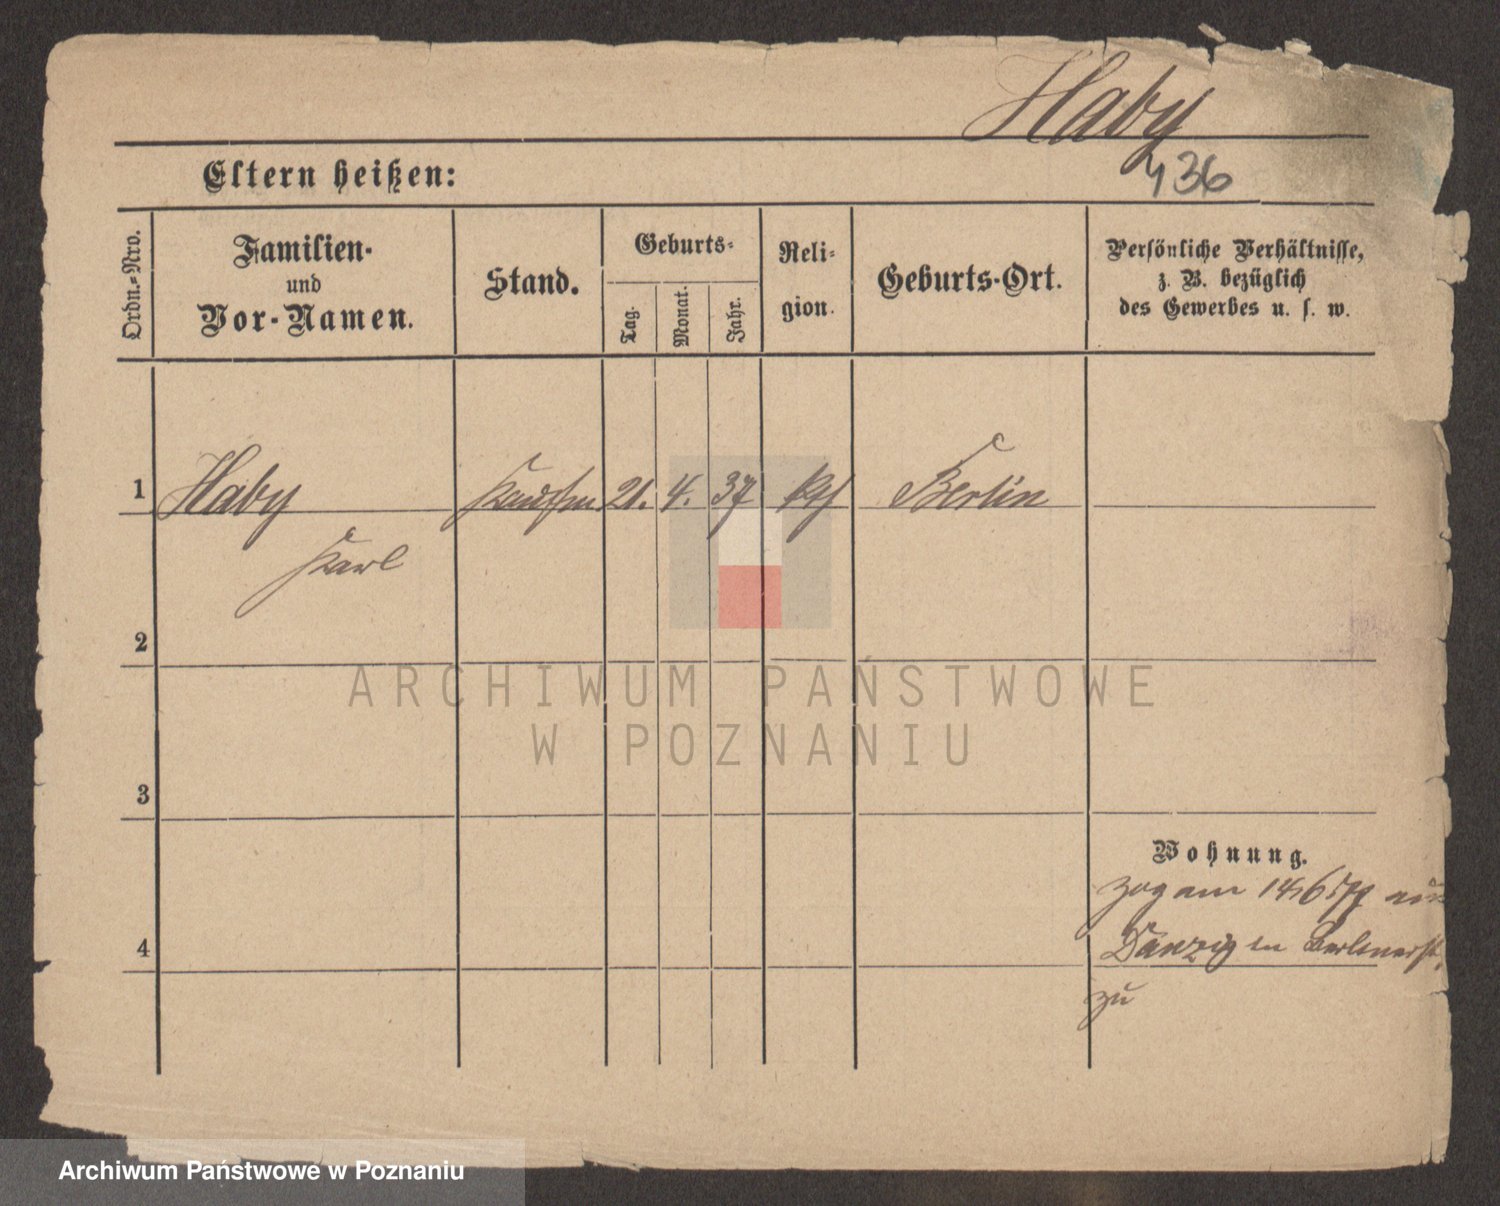 Haby
436
Eltern heißen:
Ordn.-Nro.
Familien-
und
Vor-Namen.
Stand.
Geburts-
Tag.
Monat.
Jahr.
Reli-
gion.
Geburts-Ort.
Persönliche Verhältnisse,
z. B. bezüglich
des Gewerbes u. s. w.
1 Haby Kaufm 21. 4. 37 Berlin
Karl
2
3
4
Wohnung.
zog am 14/6 79 aus
Danzig in Berlinerst.
zu
ARCHIWUM PAŃSTWOWE
W POZNANIU
Archiwum Państwowe w Poznaniu